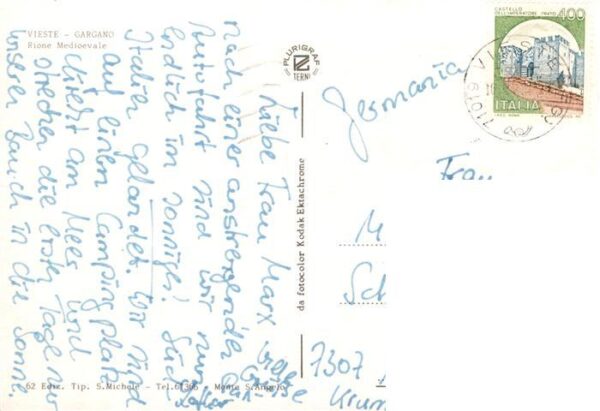 VIESTE - GARGANO
Rione Medioevale
Liebe Frau Marx
nach einer anstrengenden
Autofahrt sind wir nun
endlich im sonnigen Süd-
italien gelandet. Wir sind
auf einem Campingplatz
direkt am Meer und
strecken die ersten Tage nur
unseren Bauch in die Sonne.
Grüße
62 Ediz. Tip. S. Michele - Tel. 61306 - Monte S. Angelo
PLURIGRAF
TERNI
da fotocolor Kodak Ektachrome
CASTELLO
DELL'IMPERATORE PRATO
400
ITALIA
Germania
Frau
M
Sch
7307
Krum